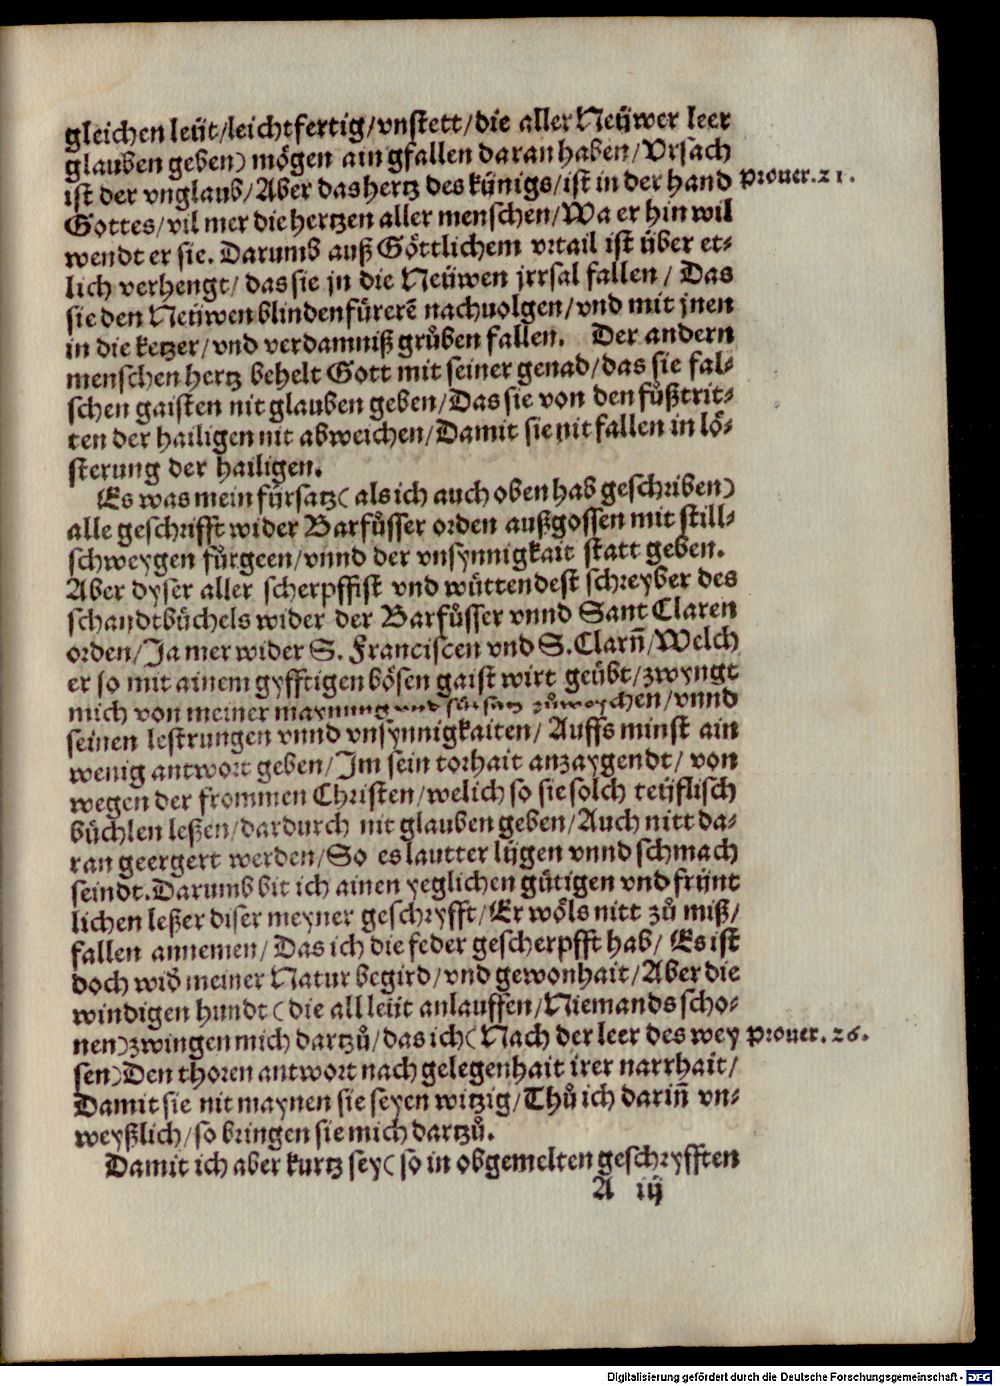 gleichen leüt/leichtfertig/vnstett/die aller Neüwer leer
glauben geben) mögen ain gfallen daran haben/Vrsach
ist der vnglaub/Aber das hertz des künigs/ist in der hand
Prouer. 21.
Gottes/vil mer die hertzen aller menschen/Wa er hin wil
wendt er sie. Darumb auß Göttlichem vrtail ist über et-
lich verhengt/ das sie jn die Neüwen jrrsal fallen/ Das
sie den Neüwen blinden fürerẽ nachuolgen/vnd mit jnen
in die ketzer/vnd verdamniß grůben fallen. Der andern
menschen hertz behelt Gott mit seiner genad/das sie fal-
schen gaisten nit glauben geben/Das sie von den fůßtrit-
ten der hailigen nit abweichen/Damit sie nit fallen in lö-
sterung der hailigen.
Es was mein fürsatz( als ich auch oben hab geschriben)
alle geschrifft wider Barfůsser orden außgossen mit still-
schweygen fůrgeen/vnnd der vnsynnigkait statt geben.
Aber dyser aller scherpffist vnd wüttendest schreyber des
schandtbüchels wider der Barfůsser vnnd Sant Claren
orden/Ja mer wider S. Franciscen vnd S. Clarñ/Welch
er so mit ainem gyfftigen bösen gaist wirt geübt/zwyngt
mich von meiner maynung vnd fürsatz zůweychen/vnnd
seinen lestrungen vnnd vnsynnigkaiten/ Auffs minst ain
wenig antwort geben/Im sein torhait anzaygendt/ von
wegen der frommen Christen/welich so sie solch teüflisch
büchlen leßen/dardurch nit glauben geben/Auch nitt da-
ran geergert werden/So es lautter lügen vnnd schmach
seindt. Darumb bit ich ainen yeglichen gütigen vnd frünt
lichen leßer diser meyner geschryfft/Er wöls nitt zů miß/
fallen annemen/Das ich die feder gescherpfft hab/ Es ist
doch wid̾ meiner Natur begird/vnd gewonhait/Aber die
windigen hundt( die all leüt anlauffen/Niemands scho-
nen)zwingen mich dartzů/das ich( Nach der leer des wey
Prouer. 26.
sen)Den thoren antwort nach gelegenhait irer narrhait/
Damit sie nit maynen sie seyen witzig/Thů ich dariñ vn-
weyßlich/so bringen sie mich dartzů.
Damit ich aber kurtz sey( so in obgemelten geschryfften
A iij
Digitalisierung gefördert durch die Deutsche Forschungsgemeinschaft - DFG